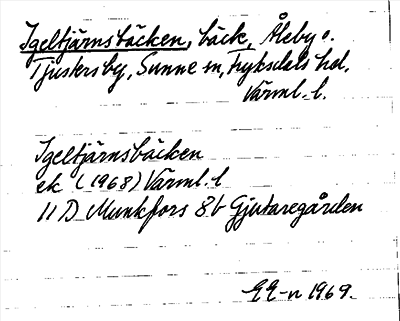 Igeltjärnsbäcken, bäck, Åleby o.
Tjustersby, Sunne sn, Fryksdals hd.
Värml. l.
Igeltjärnsbäcken
ek (1968) Värml. l
11 D Munkfors 8b Gjutaregården
1969.